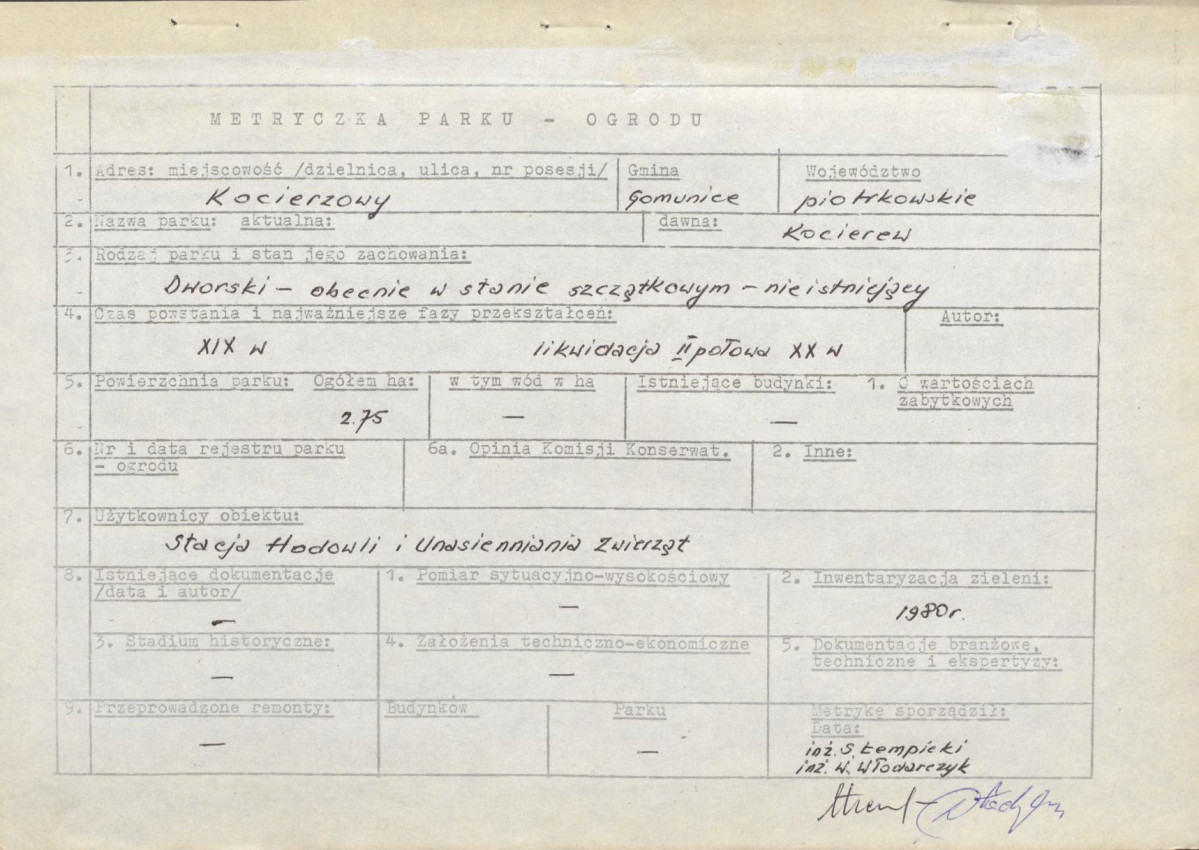 METRYCZKA PARKU - OGRODU
1. Adres: miejscowość /dzielnica, ulica, nr posesji/ Gmina Województwo
Kocierzowy Gomunice piotrkowskie
2. Nazwa parku: aktualna: dawna:
Kocierew
3. Rodzaj parku i stan jego zachowania:
Dworski - obecnie w stanie szczątkowym - nieistniejący
4. Czas powstania i najważniejsze fazy przekształceń: Autor:
XIX w likwidacja II połowa XX w
5. Powierzchnia parku: Ogółem ha: w tym wód w ha Istniejące budynki: 1. O wartościach
zabytkowych
2.75 — —
6. Nr i data rejestru parku 6a. Opinia Komisji Konserwat. 2. Inne:
- ogrodu
7. Użytkownicy obiektu:
Stacja Hodowli i Unasienniania Zwierząt
8. Istniejące dokumentacje 1. Pomiar sytuacyjno-wysokościowy 2. Inwentaryzacja zieleni:
/data i autor/
— — 1980r.
3. Stadium historyczne: 4. Założenia techniczno-ekonomiczne 5. Dokumentacje branżowe,
techniczne i ekspertyzy:
— —
9. Przeprowadzone remonty: Budynków Parku Metrykę sporządził:
Data:
— —
inż. S. Łempicki
inż. W. Włodarczyk